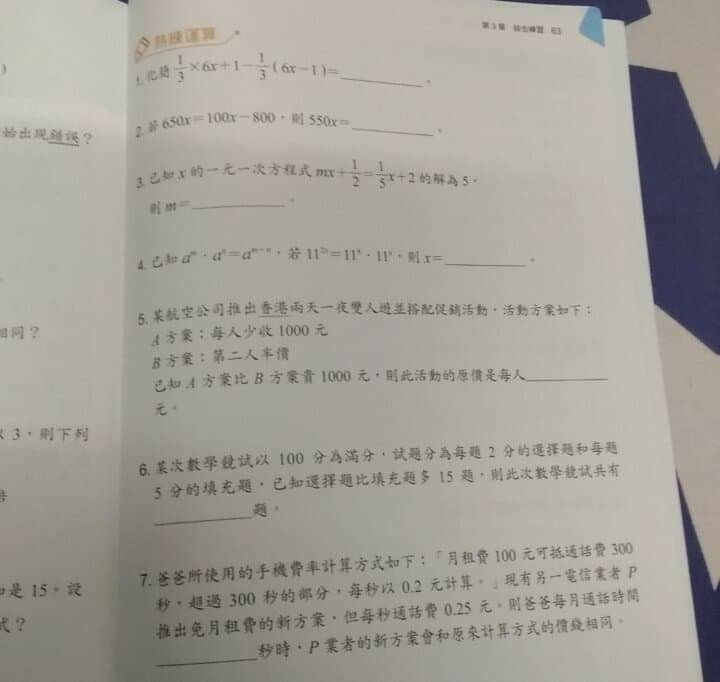 第3章 綜合練習 63
熟練運算
1. 化簡 1/3×6x+1−1/3(6x−1)=________。
2. 若 650x=100x−800,則 550x=________。
3. 已知 x 的一元一次方程式 mx+1/2=1/5x+2 的解為 5,
則 m=________。
4. 已知 aᵐ·aⁿ=aᵐ⁺ⁿ,若
=________。
5. 某航空公司推出香港兩天一夜雙人遊並搭配促銷活動,活動方案如下:
A 方案:每人少收 1000 元
B 方案:第二人半價
已知 A 方案比 B 方案貴 1000 元,則此活動的原價是每人________
元。
6. 某次數學競試以 100 分為滿分,試題分為每題 2 分的選擇題和每題
5 分的填充題,已知選擇題比填充題多 15 題,則此次數學競試共有
________題。
7. 爸爸所使用的手機費率計算方式如下:「月租費 100 元可抵通話費 300
秒,超過 300 秒的部分,每秒以 0.2 元計算。」現有另一電信業者 P
推出免月租費的新方案,但每秒通話費 0.25 元。則爸爸每月通話時間
________秒時,P 業者的新方案會和原來計算方式的價錢相同。
始出現錯誤?
相同?
3,則下列
是 15。設
式?